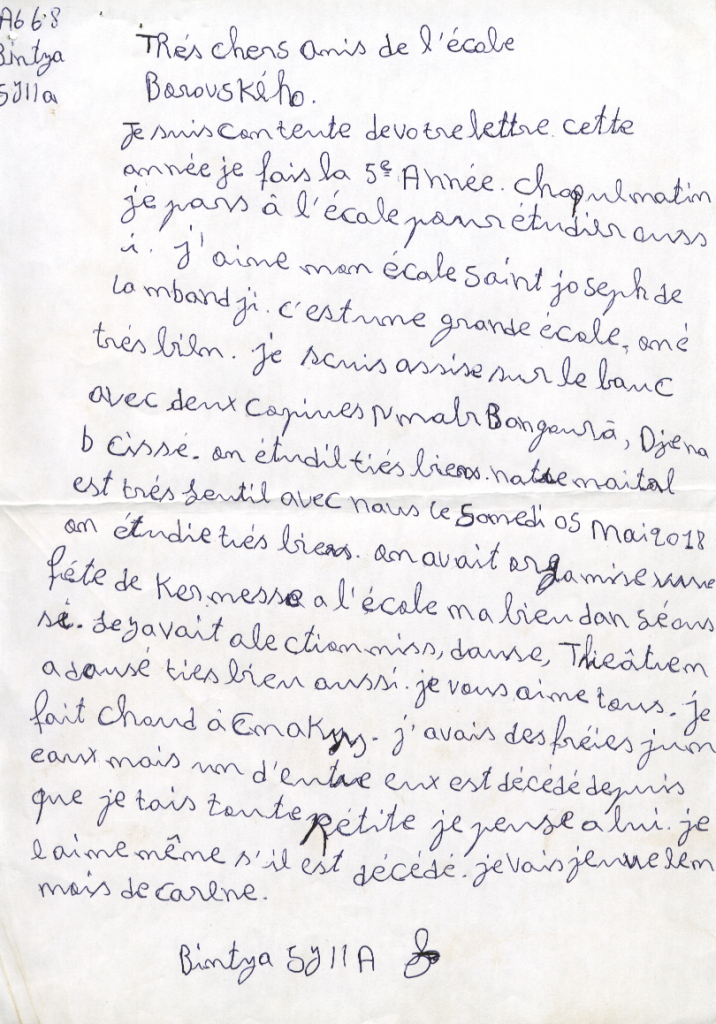 A668
Bintya
5J11a
Trés chers amis de l'école
Borovského.
Je suis contente de votre lettre. cette
année je fais la 5e Année. chaqul matin
je pars à l'école pour étudier auss
i. j'aime mon école Saint joseph de
Lambandji. c'est une grande école, on é
trés biln. je suis assise sur le banc
avec deux copines Bangoura, Djena
b cissé. on étudil trés biens. notre maital
est trés gentil avec nous le Samedi 05 Mai 2018
on étudie trés biens. on avait organise une
féte de Kermesse a l'école ma bien dan sé aus
si. avait alection miss, danse, Theâtre
a dansé ties bien aussi. je vous aime tous. je
fait chaud à j'avais des fréies jum
eaux mais un d'entre eux est décédé depuis
que je tais toute Pétite je pense a lui. je
l aime même s'il est décédé. je vais
mois de carêne.
Bintya 5J11A